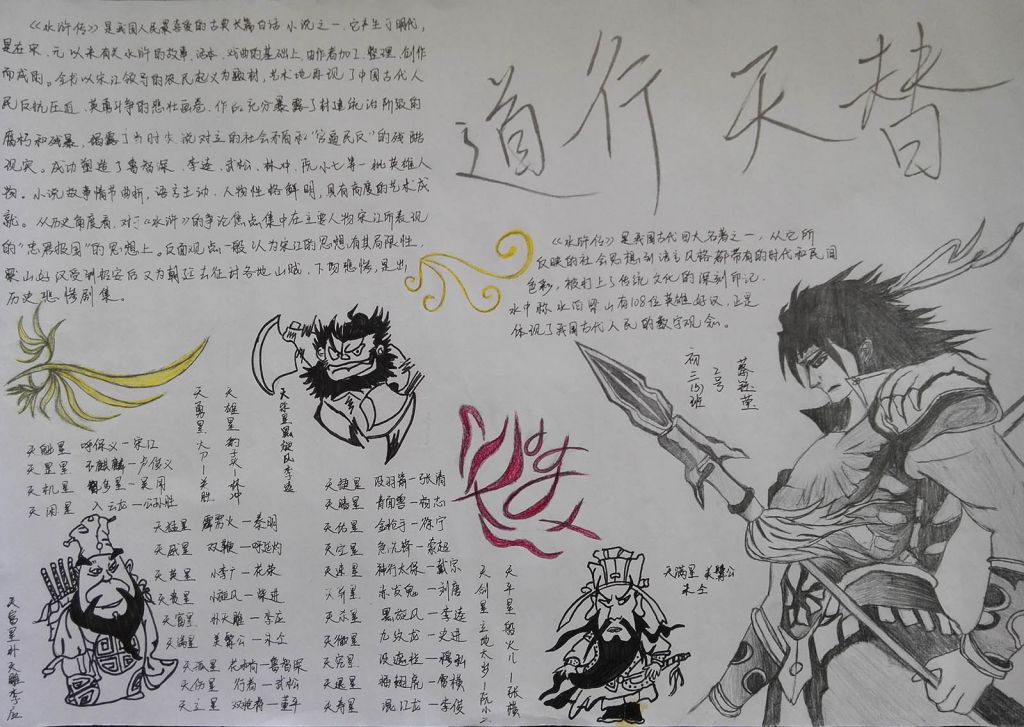 替天行道
《水浒传》是我国人民最喜爱的古典长篇白话小说之一.它产生于明代,
是在宋、元以来有关水浒的故事、话本、戏曲的基础上,由作者加工、整理、创作
而成的。全书以宋江领导的农民起义为题材,艺术地再现了中国古代人
民反抗压迫、英勇斗争的悲壮画卷。作品充分暴露了封建统治阶级的
腐朽和残暴,揭露了当时尖锐对立的社会矛盾和“官逼民反”的残酷
现实。成功塑造了鲁智深、李逵、武松、林冲、阮小七等一批英雄人
物。小说故事情节曲折,语言生动,人物性格鲜明,具有高度的艺术成
就。从历史角度看,对于《水浒》的争论焦点集中在主要人物宋江所表现
的“忠君报国”的思想上。反面观点一般认为宋江的思想有其局限性,
梁山好汉受到招安后又为朝廷去征讨各地山贼,下场悲惨,是出
历史悲惨剧集。
《水浒传》是我国古代四大名著之一,从它所
反映的社会思想到语言风格都带有的时代和民间
色彩,被打上了传统文化的深刻印记.
水中脉水泊梁山有108位英雄好汉,正是
体现了我国古代人民的数字观念。
初三(5)班
2号
天魁星 呼保义—宋江
天罡星 玉麒麟—卢俊义
天机星 智多星—吴用
天闲星 入云龙—公孙胜
天勇星大刀—关胜
天雄星豹子头—林冲
天杀星黑旋风李逵
天猛星 霹雳火—秦明
天威星 双鞭—呼延灼
天英星 小李广—花荣
天贵星 小旋风—柴进
天富星 扑天雕—李应
天满星 美髯公—朱仝
天孤星 花和尚—鲁智深
天伤星 行者—武松
天立星 双枪将—董平
天捷星 没羽箭—张清
天暗星 青面兽—杨志
天佑星 金枪手—徐宁
天空星 急先锋—索超
天速星 神行太保—戴宗
天异星 赤发鬼—刘唐
天杀星 黑旋风—李逵
天微星 九纹龙—史进
天究星 没遮拦—穆弘
天退星 插翅虎—雷横
天寿星 混江龙—李俊
天剑星立地太岁—阮小二
天平星船火儿—张横
天满星 美髯公
朱仝
天富星扑天雕李应